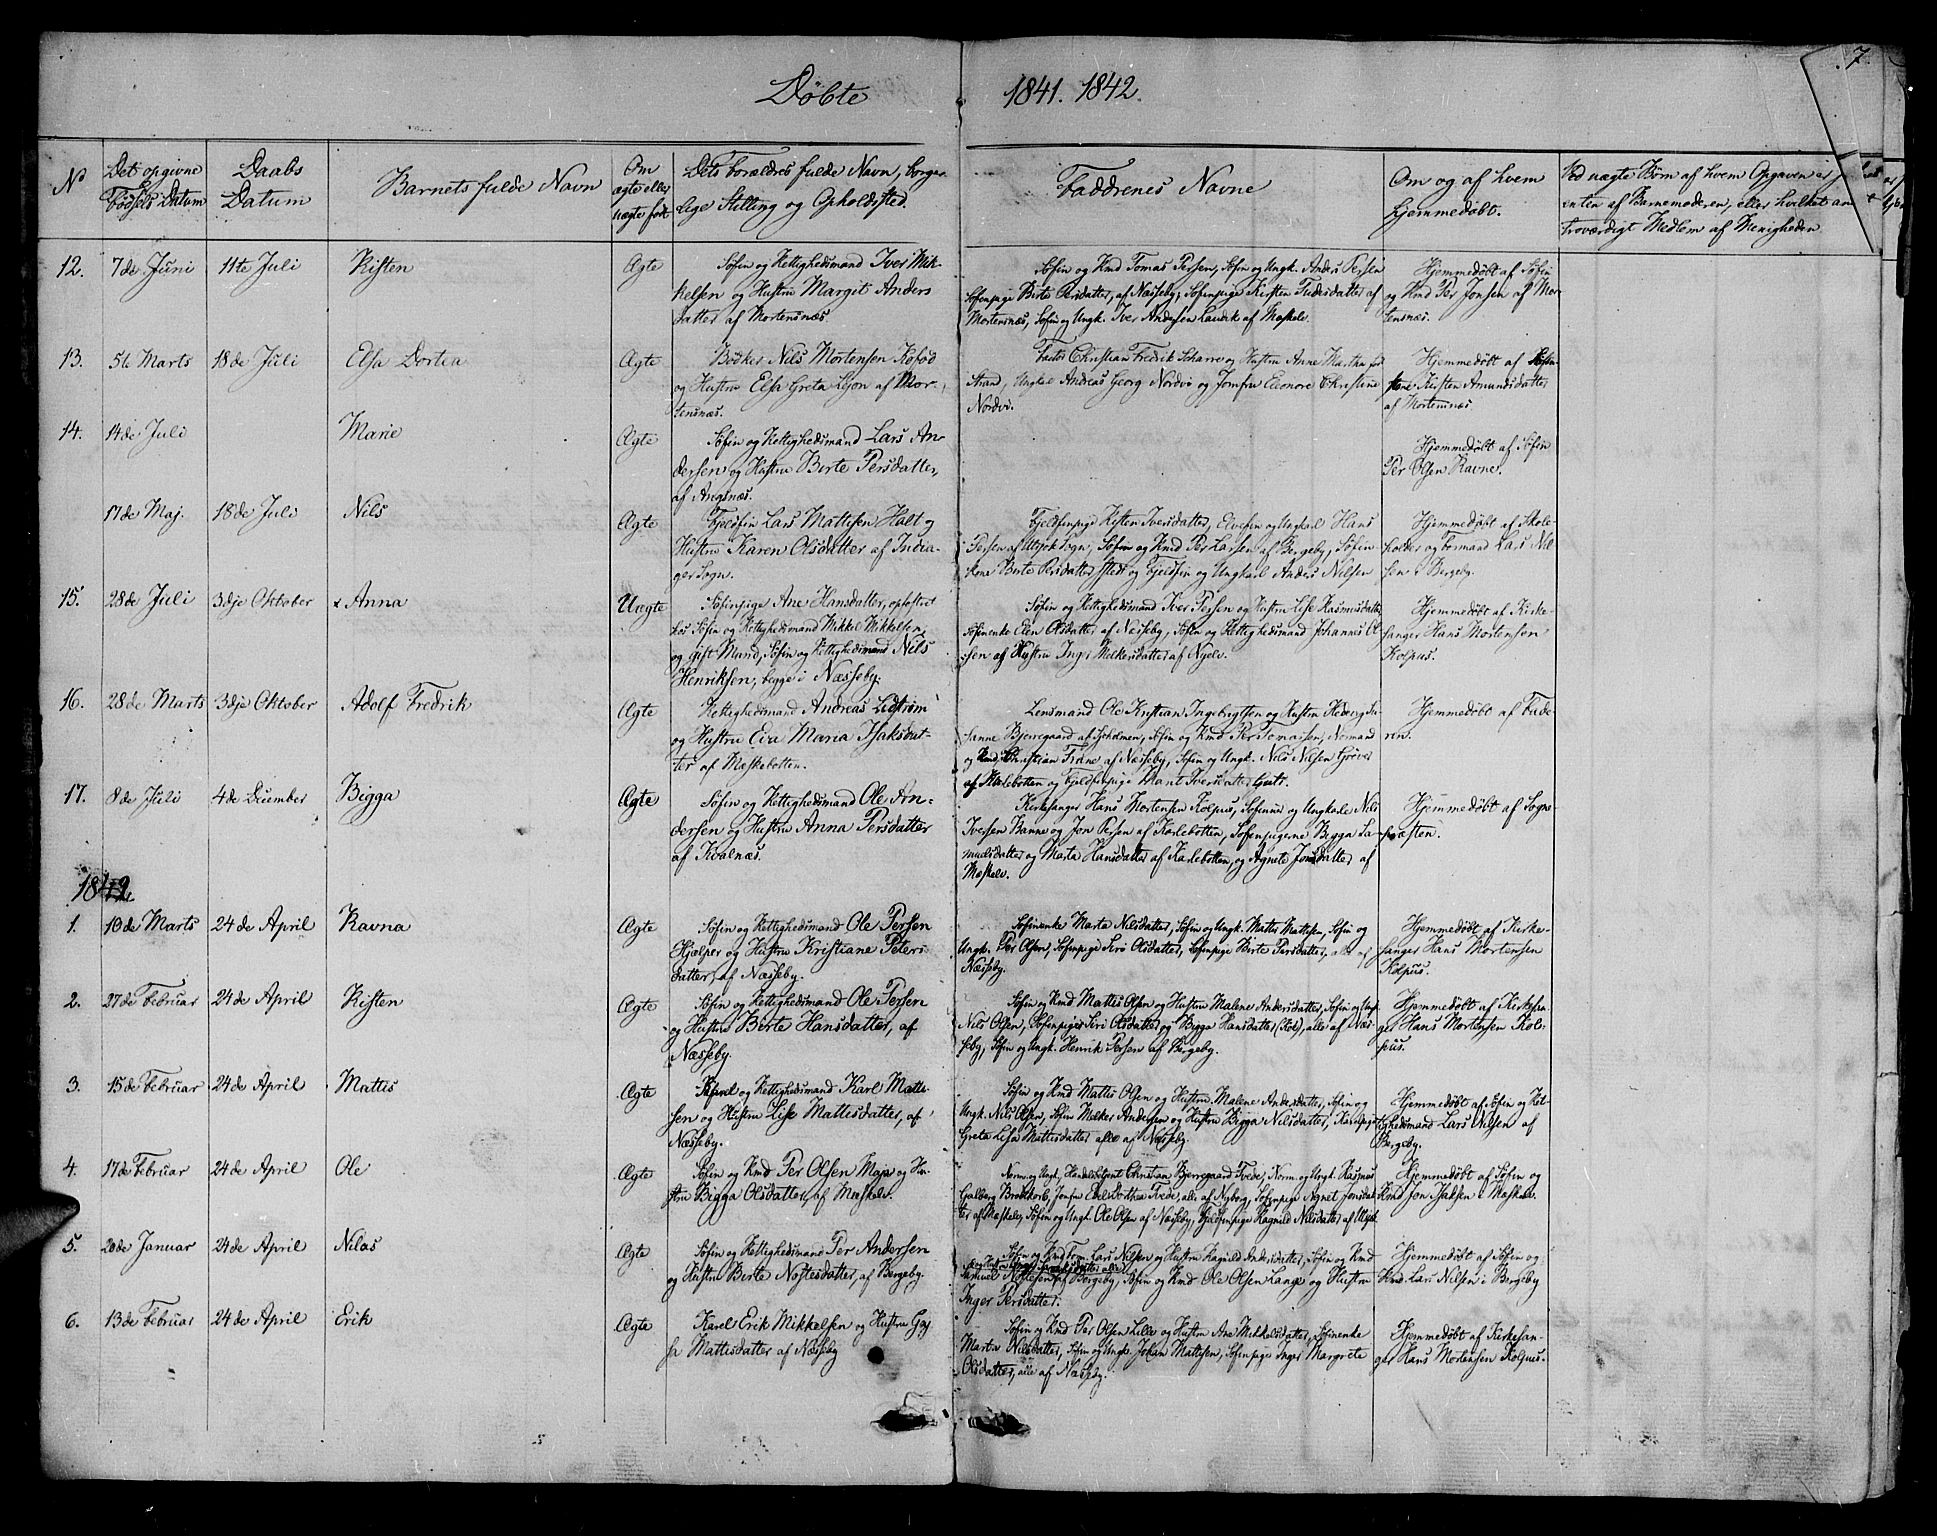 Döbte 1841. 1842.
7
No
Det opgivne
Födsels Datum
Daabs
Datum
Barnets fulde Navn
Om
ægte eller
uægte født
Dets Forældres fulde Navn, borger-
lige Stilling og Opholdsted.
Faddrenes Navne
Om og af hvem
hjemmedöbt.
Ved uægte Börn af hvem Opgaven er
enten af Barnemoderen, eller hvilket
troværdigt Medlem af Menigheden
12. 7de Juni 11te Juli Kisten Ægte
Söfin og Rettighedsmand Iver Mik-
kelsen og Hustru Margit Anders
datter af Mortensnæs.
Söfin og Rmd Tomas Persen, Söfin og Ungk. Anders Persen
Söfinpige Birte Persdatter, af Næsseby, Söfinpige Kirsten af
Mortensnæs, Söfin og Ungk. Iver Andersen af Maskelv.
Hjemmedöbt af Söfin
og Rmd Per Jonsen af Mor-
tensnæs.
13. 5te Marts 18de Juli Elsa Dortea Ægte
Bödker Nils Mortensen Kofod
og Hustru Elsa Greta Lyon af Mor-
tensnæs.
Christian Fredrik Scharre og Hustru Anne Martha för
Strand, Ungkal Andreas Georg Nordvi og Jomfru Eleonore Christine
Nordvi.
Hjemmedöbt af
Kisten Amundsdatter
af Mortensnæs
14. 14de Juli Marie Ægte
Söfin og Rettighedsmand Lars An-
dersen og Hustru Berte Persdatter,
af Angsnæs.
Hjemmedöbt af Söfin
Per Olsen Ravne.
17de Maj. 18de Juli Nils Ægte
Fjeldfin Lars Mattisen Halt og
Hustru Karen Olsdatter af India-
ger Sogn.
Fjeldfinpige Kisten Iversdatter, Elvefin og Ungkarl Hans
Persen af Utsjok Sogn, Söfin og Rmd Per Larsen af Bergeby, Söfin-
kone Birte Persdatter og Fjeldfin og Ungkarl Anders Nilsen
Hjemmedöbt af Skole-
holder og Formand Lars Nil-
sen i Bergeby.
15. 28de Juli 3dje Oktober Anna Uægte
Söfinpige Ane Hansdatter, opfostret
hos Söfin og Rettighedsmand Mikkel Mikkelsen,
og gift Mand, Söfin og Rettighedsmand Nils
Henriksen, begge i Næsseby.
Söfin og Rettighedsmand Iver Persen og Hustru Lise Rasmusdatter
Söfinenke Elen Olsdatter af Næsseby, Söfin og Rettighedsmand Johannes Ol-
sen af Hustru Inger Melkersdatter af Nyelv.
Hjemmedöbt af Kirke-
sanger Hans Mortensen
Kolpus.
16. 28de Marts 3dje Oktober Adolf Fredrik Ægte
Rettighedsmand Andreas Lidström
og Hustru Eva Maria Isaksdat-
ter af Mæskebotten.
Lensmand Ole Kristian Ingebrigtsen og Hustru Hedevig Su-
sanne Bjerregaard af Söfin og Rmd Per Tomassen, Normand
og Rmd, Christian Frane af Næsseby, Söfin og Ungk. Nils Nilsen Gröver
af Karlebotten og Fjeldfinpige Marit Iversdatter
Hjemmedöbt af Fade-
ren.
17. 8de Juli 4de December Bigga Ægte
Söfin og Rettighedsmand Ole An-
dersen og Hustru Anna Persdatter
af Kvalnæs.
Kirkesanger Hans Mortensen Kolpus, Söfinne og Ungkale Nils
Iversen Banne og Jon Persen af Karlebotten, Söfinpigerne Bigga Sa-
muelsdatter og Marta Hansdatter af Karlebotten, og Agnete Jonsdatter af
Mæskelv.
Hjemmedöbt af Sogne-
præsten.
1842.
1. 10de Marts 24de April Ravna Ægte
Söfin og Rettighedsmand Ole Persen
Hjelper og Hustru Kristiane Peters
datter, af Næsseby.
Söfinenke Marta Nilsdatter, Söfin og Ungk. Mattis Mattisen, Söfin og
Ungk. Per Olsen, Söfinpige Siri Olsdatter, Söfinpige Birte Persdatter, alle af
Næsseby.
Hjemmedöbt af Kirke-
sanger Hans Mortensen
Kolpus.
2. 27de Februar 24de April Kisten Ægte
Söfin og Rettighedsmand Ole Persen
og Hustru Birte Hansdatter, af
Næsseby.
Söfin og Rmd Mattis Olsen og Hustru Malene Andersdatter, Söfin og Ungk
Nils Olsen, Söfinpiger Siri Olsdatter og Bigga Hansdatter, alle af Næs-
seby, Söfin og Ungk. Henrik Persen af Bergeby.
Hjemmedöbt af Kirkesan-
ger Hans Mortensen Kol-
pus.
3. 15de Februar 24de April Mattis Ægte
og Rettighedsmand Karl Matti-
sen og Hustru Lise Mattisdatter, af
Næsseby.
Söfin og Rmd Mattis Olsen og Hustru Malene Andersdatter, Söfin og
Ungk. Nils Olsen, Söfin Melker Andersen og Hustru Bigga Nilsdatter,
Greta Lisa Mattisdatter alle af Næsseby.
Hjemmedöbt af Söfin og Ret-
tighedsmand Lars Nilsen af
Bergeby.
4. 17de Februar 24de April Ole Ægte
Söfin og Rmd Per Olsen Maja og Hu-
stru Bigga Olsdatter, af Mæskelv.
Norm og Ungk. Christian Bjerregaard Tvede, Norm. og Ungk. Rasmus
Brodtkorb, Jomfru Dorthea Tvede, alle af Nyborg, Söfinpige Agnet Jonsdat-
ter af Mæskelv, Söfin og Ungk Ole Olsen af Næsseby, Fjeldfinpige Ragnild Nilsdatter af Utsjok
Hjemmedöbt af Söfin og
Rmd Jon Isaksen i Mæskelv.
5. 20de Januar 24de April Nilas Ægte
Söfin og Rettighedsmand Per Andersen
og Hustru Birte Nostesdatter, af Bergeby.
Söfin og Rmd Form. Lars Nilsen og Hustru Ragnild Andersdatter, Söfin og Rmd
Samuel Nostesen, af Bergeby, Söfin og Rmd Ole Olsen Lange og Hustru
Inger Persdatter.
Hjemmedöbt af Söfin og
Rmd. Lars Nilsen i Bergeby
6. 13de Februar 24de April Erik Ægte
Karel Erik Mikkelsen og Hustru Gaj-
sa Mattisdatter af Næsseby
Söfin og Rmd Per Olsen Lille og Hustru Ane Mikkelsdatter, Söfinenke
Marta Nilsdatter, Söfin og Ungk. Johan Mattisen, Söfinpige Inger Margrete
Olsdatter, alle af Næsseby.
Hjemmedöbt af Kirkesan-
ger Hans Mortensen Kolpus.